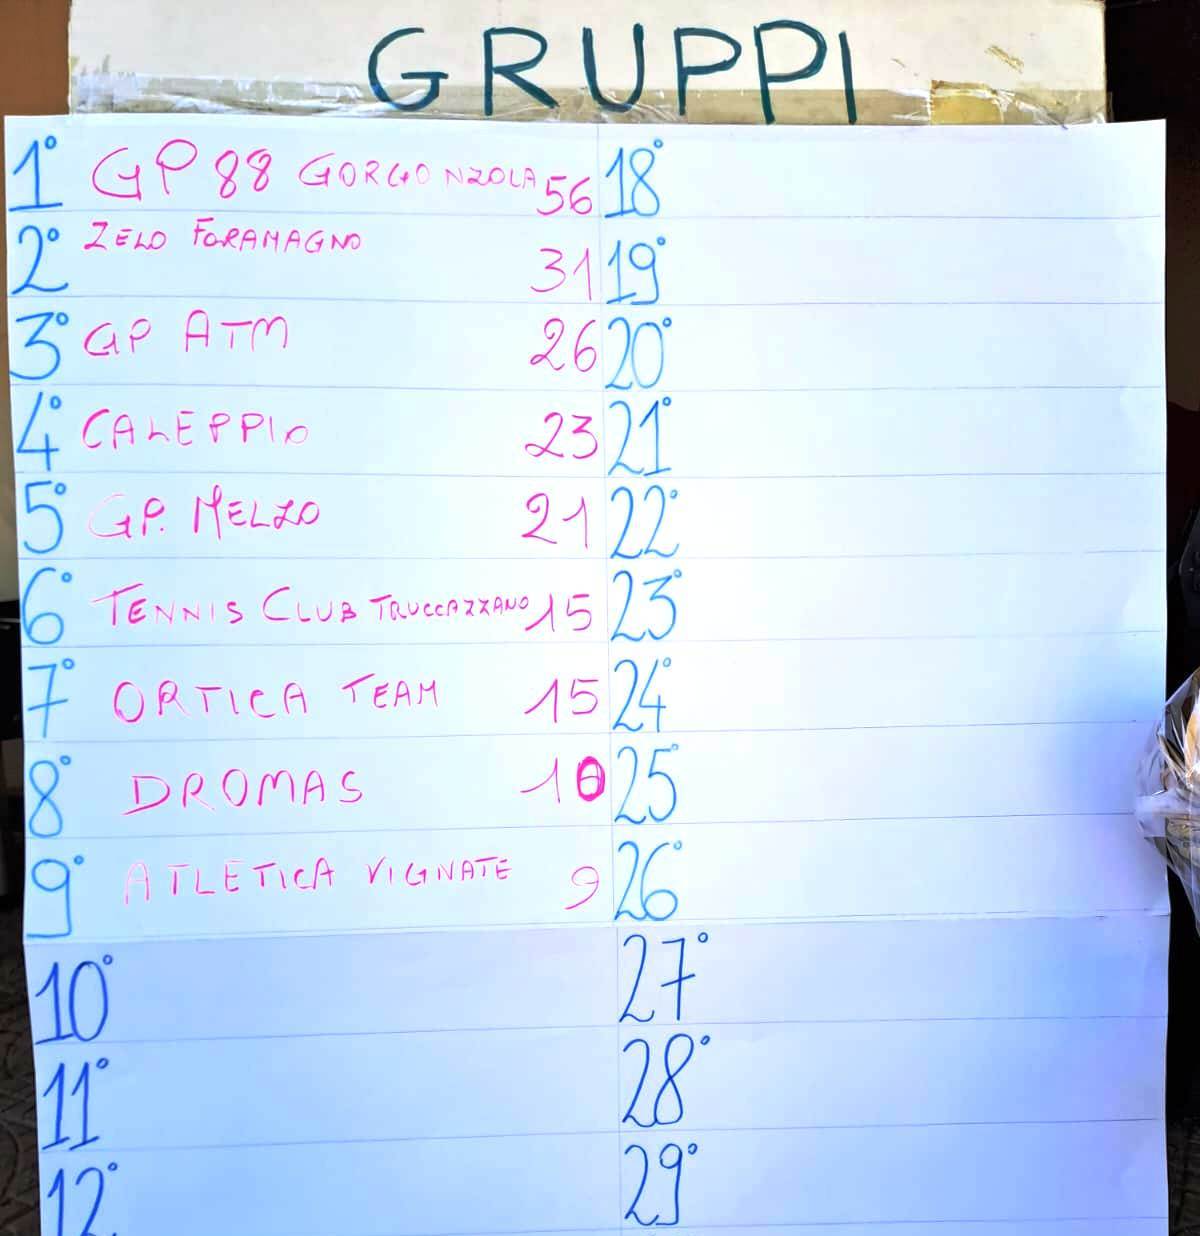 GRUPPI
1° GP 88 GORGONZOLA 56
2° ZELO FORAMAGNO 31
3° GP ATM 26
4° CALEPPIO 23
5° GP. MELZO 21
6° TENNIS CLUB TRUCCAZZANO 15
7° ORTICA TEAM 15
8° DROMAS 10
9° ATLETICA VIGNATE 9
10°
11°
12°
18°
19°
20°
21°
22°
23°
24°
25°
26°
27°
28°
29°